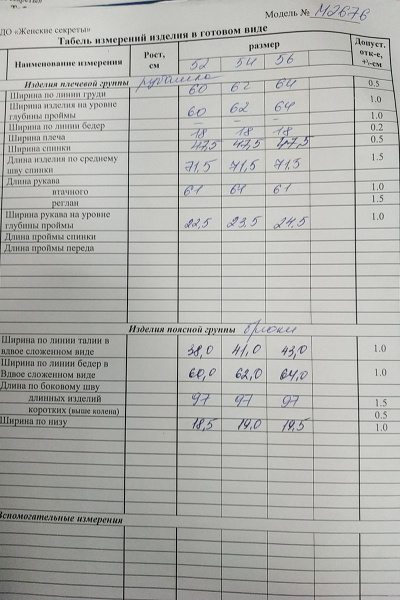 Модель № М2676
ДО «Женские секреты»
Табель измерений изделия в готовом виде
Наименование измерения Рост, см размер Допуст. отк-е, +\-см
52 54 56
Изделия плечевой группы рубашка
Ширина по линии груди 60 62 64 0.5
Ширина изделия на уровне глубины проймы 60 62 64 1.0
Ширина по линии бедер – – – 1.0
Ширина плеча 18 18 18 0.2
Ширина спинки 47,5 47,5 47,5 0.5
Длина изделия по среднему шву спинки 71,5 71,5 71,5 1.5
Длина рукава
втачного 61 61 61 1.0
реглан 1.5
Ширина рукава на уровне глубины проймы 22,5 23,5 24,5 1.0
Длина проймы спинки
Длина проймы переда
Изделия поясной группы брюки
Ширина по линии талии в вдвое сложенном виде 38,0 41,0 43,0 1.0
Ширина по линии бедер в Вдвое сложенном виде 60,0 62,0 64,0 1.0
Длина по боковому шву
длинных изделий 97 97 97 1.5
коротких (выше колена) 0.5
Ширина по низу 18,5 19,0 19,5 1.0
Вспомогательные измерения